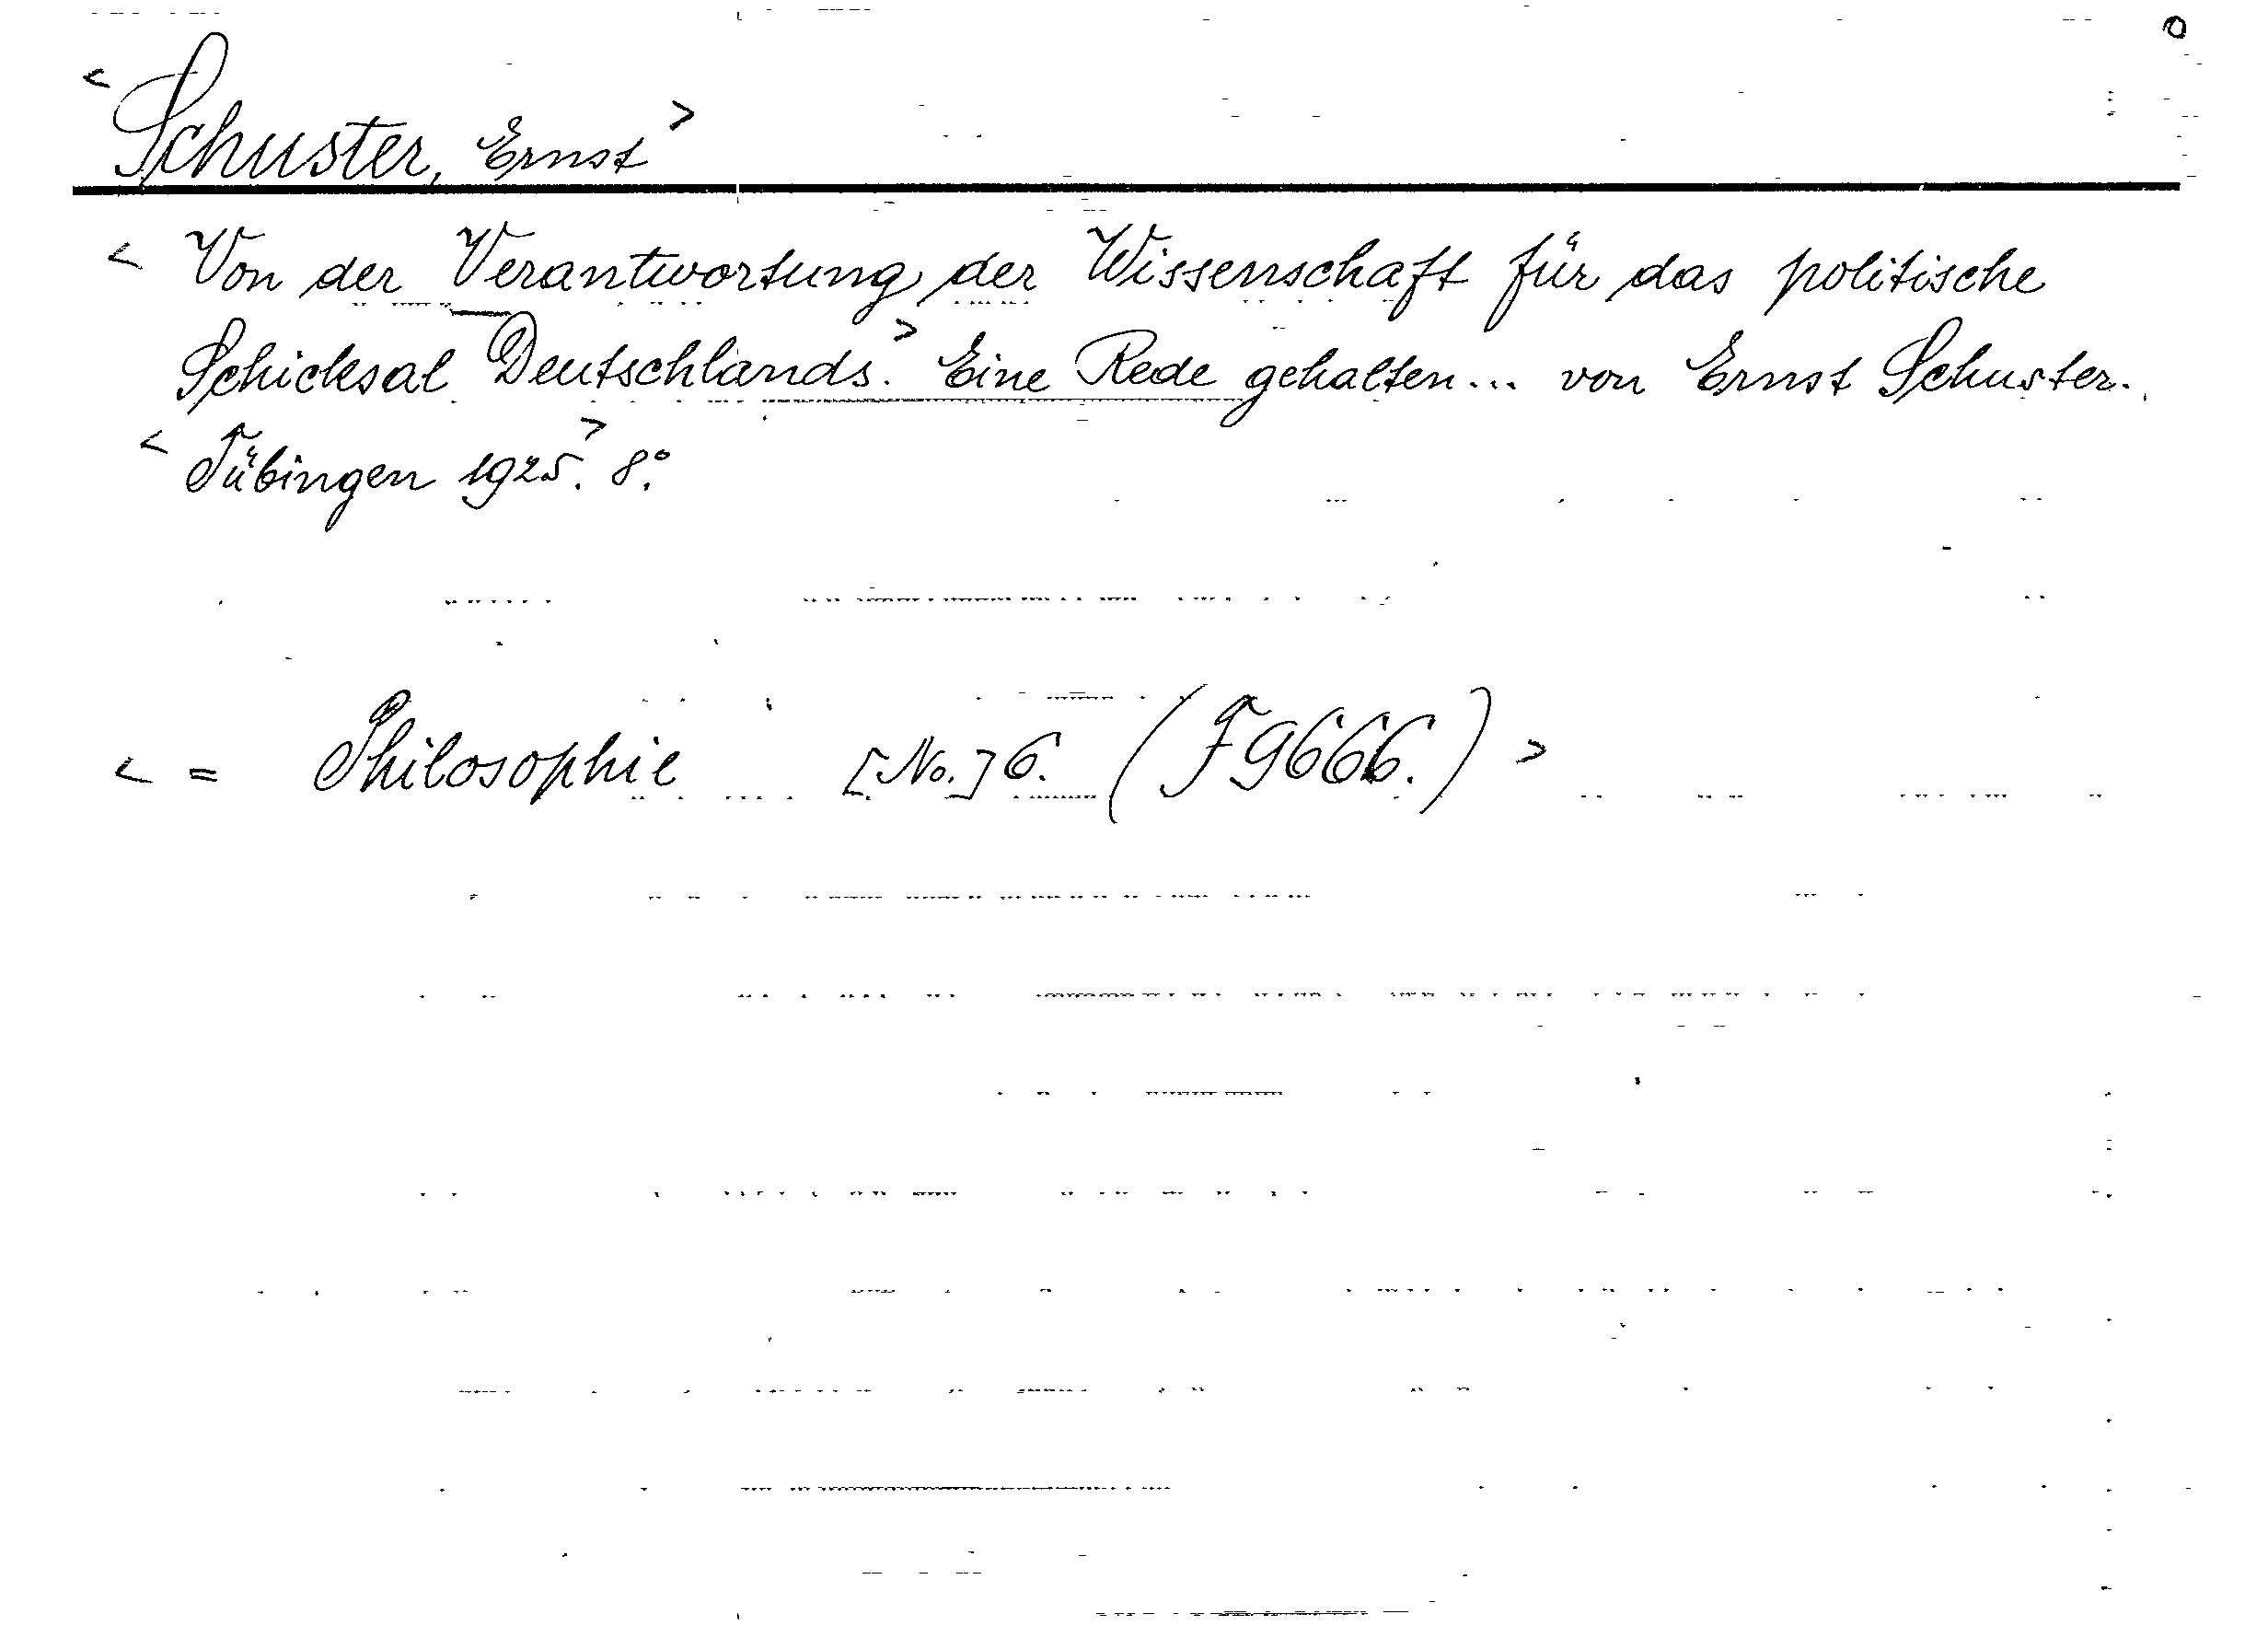 <Schuster, Ernst>
<Von der Verantwortung der Wissenschaft für das politische
Schicksal Deutschlands.> Eine Rede gehalten... von Ernst Schuster.
<Tübingen 1925.> 8°.
<= Philosophie [No.] 6. (F9666.)>